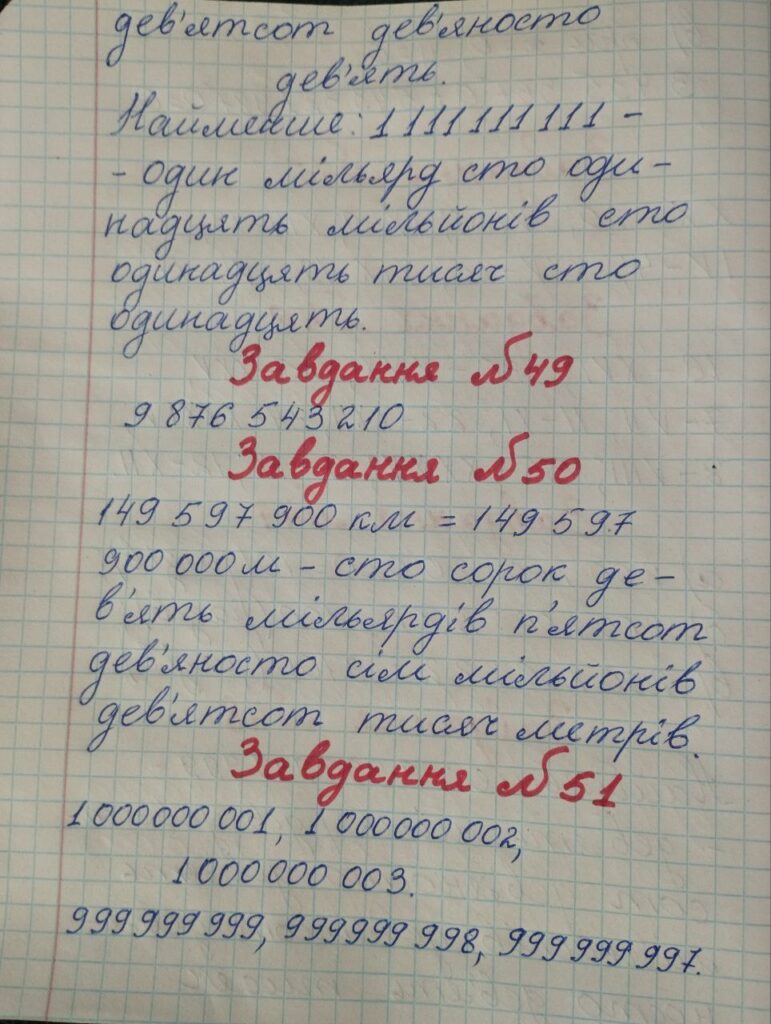 дев'ятсот дев'яносто
дев'ять.
Найменше: 1 111 111 111 –
- один мільярд сто оди-
надцять мільйонів сто
одинадцять тисяч сто
одинадцять.
Завдання №49
9 876 543 210
Завдання №50
149 597 900 км = 149 597
900 000 м – сто сорок де-
в'ять мільярдів п'ятсот
дев'яносто сім мільйонів
дев'ятсот тисяч метрів.
Завдання №51
1 000 000 001, 1 000 000 002,
1 000 000 003.
999 999 999, 999 999 998, 999 999 997.